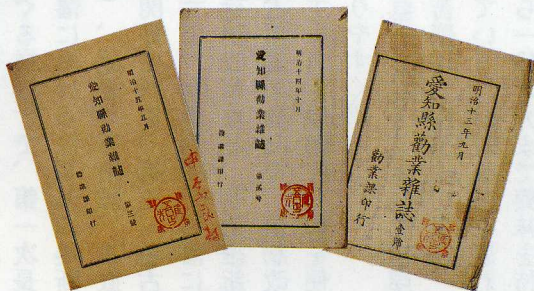 明治十三年九月
愛知縣勸業雜誌 壹號
勸業課印行
明治十四年十月
愛知縣勸業雜誌
第貳號
勸業課印行
明治十五年五月
愛知縣勸業雜誌
第三號
勸業課印行